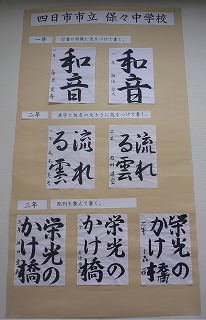 四日市市立 保々中学校
一年
行書の特徴に気をつけて書く。
和音
和音
二年
漢字と仮名の大きさに気をつけて書く。
流れ
る雲
流れ
る雲
三年
配列を整えて書く。
栄光の
かけ橋
栄光の
かけ橋
栄光の
かけ橋